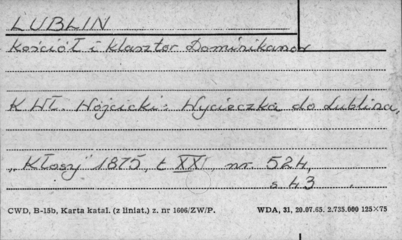 LUBLIN
Kościół i Klasztor Dominikanów
K Wł. Wójcicki: Wycieczka do Lublina,
„Kłosy" 1875, t XXI, nr. 524,
s 43
CWD, B-15b, Karta katal. (z liniat.) z. nr 1606/ZW/P. WDA, 21, 20.07.65. 2.735.000 125×75